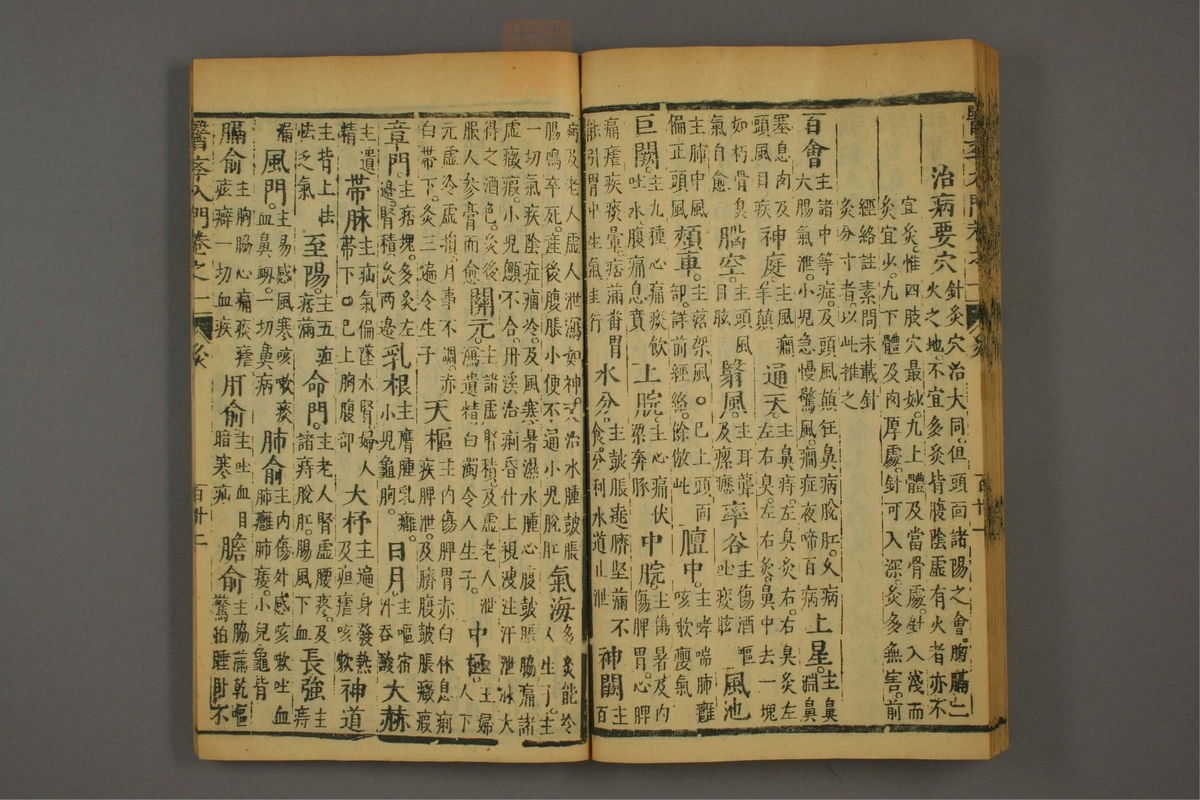 醫學入門卷之一 灸 百廿一
治病要穴 針灸穴治大同。但頭面諸陽之會。胸膈二火之地。不宜多灸。背腹陰虛有火者亦不
宜灸。惟四肢穴最妙。凡上體及當骨處。針入淺而灸宜少。凡下體及肉厚處。針可入深。灸多無害。前
經絡註素問未載針灸分寸者以此推之
百會 主諸中等症。及頭風癲狂鼻病脫肛。久病大腸氣泄。小兒急慢驚風。癇症夜啼百病 上星。主鼻淵鼻
塞息肉及頭風目疾 神庭 主風癇羊癲 通天。主鼻痔。左臭灸右。右臭灸左。左右臭。左右灸。鼻中去一塊
如朽骨臭氣自愈 腦空。主頭風目眩 翳風。主耳聾及瘰癧 率谷 主傷酒嘔吐痰眩 風池
主肺中風偏正頭風 頰車。主落架風。○已上頭面部。詳前經絡。餘倣此 膻中。主哮喘肺癰咳嗽癭氣
巨闕。主九種心痛痰飲吐水腹痛息賁 上脘 主心痛伏梁奔豚 中脘。主傷暑及內傷脾胃。心脾
痛瘧疾痰暈。痞滿畨胃能引胃中生氣上行 水分。主鼓脹遶臍堅滿不食。分利水道止泄 神闕 主百
病及老人虛人泄瀉如神。又治水腫鼓脹腸鳴卒死。產後腹脹小便不通小兒脫肛 氣海 多灸能令人生子。主
一切氣疾陰症痼冷。及風寒暑濕水腫心腹鼓脹脇痛諸虛癥瘕。小兒顖不合。丹溪治痢昏什上視溲注汗泄脉大
得之酒色。灸後服人參膏而愈 關元。主諸虛腎積。及虛老人泄瀉遺精白濁令人生子。 中極。主婦人下
元虛冷虛損。月事不調。赤白帶下。灸三遍令生子 天樞 主內傷脾胃赤白休息痢疾脾泄。及臍腹鼓脹癥瘕
章門。主痞塊。多灸左邊。腎積灸兩邊 乳根 主膺腫乳癰。小兒龜胸。 日月。主嘔宿汁吞酸 大赫
主遺精 帶脉 主疝氣偏墜水腎婦人帶下。○已上胸腹部 大杼 主遍身發熱及疸瘧咳嗽 神道
主背上怯怯乏氣 至陽。主五疸痞滿 命門。主老人腎虛腰疼。及諸痔脫肛。腸風下血 長強 主痔
漏 風門。主易感風寒咳嗽痰血鼻衂。一切鼻病 肺俞 主內傷外感咳嗽吐血肺癰肺痿。小兒龜背
膈俞 主胸脇心痛痰瘧痃癖一切血疾 肝俞 主吐血目暗寒疝 膽俞 主脇滿乾嘔驚怕睡臥不
醫學入門卷之一 灸 百廿二